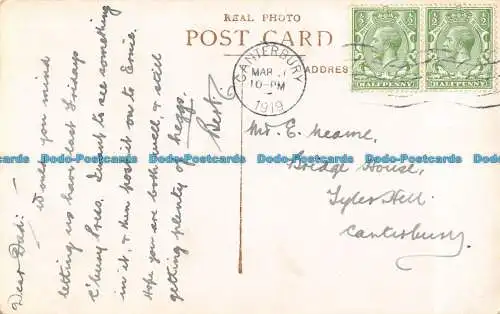 REAL PHOTO
POST CARD
ADDRESS
CANTERBURY
MAR
10-PM
1919
HALFPENNY
HALFPENNY
Dear Dad: —
would you mind
letting us have last Fridays
C'bury Press. I want to see something
in it, & then post it on to Ernie.
Hope you are both well, & still
getting plenty of eggs.
Bert.
Mr. E. Hearne,
Bridge House,
Tyler Hill
Canterbury
Dodo-Postcards Dodo-Postcards Dodo-Postcards Dodo-Postcards